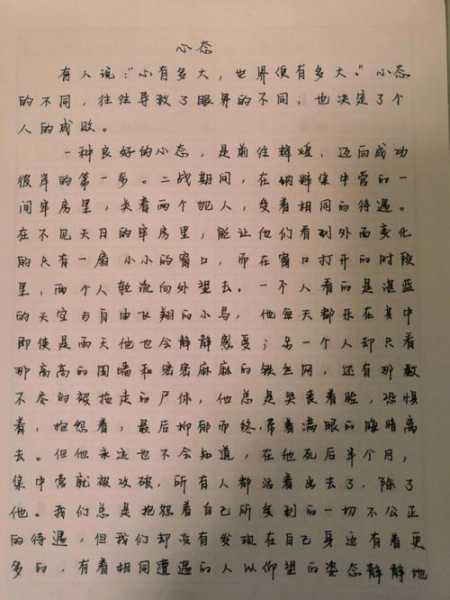 心态
有人说:"心有多大,世界便有多大。"心态
的不同,往往导致了眼界的不同,也决定了个
人的成败。
一种良好的心态,是前往辉煌,迈向成功
彼岸的第一步。二战期间,在纳粹集中营的一
间牢房里,关着两个犯人,受着相同的待遇。
在不见天日的牢房里,能让他们看到外面变化
的只有一扇小小的窗口,而在窗口打开的时段
里,两个人轮流向外望去。一个人看的是湛蓝
的天空与自由飞翔的小鸟,他每天都乐在其中
即使是雨天他也会静静感受;另一个人却只看
那高高的围墙和密密麻麻的铁丝网,还有那数
不尽的被拖走的尸体,他总是哭丧着脸,恐惧
着,抱怨着,最后抑郁而终,带着满眼的晦暗离
去。但他永远也不会知道,在他死后半个月,
集中营就被攻破,所有人都活着出去了,除了
他。我们总是抱怨着自己所受到的一切不公正
的待遇,但我们却没有发现在自己身边有着更
多的,有着相同遭遇的人以仰望的姿态静静地